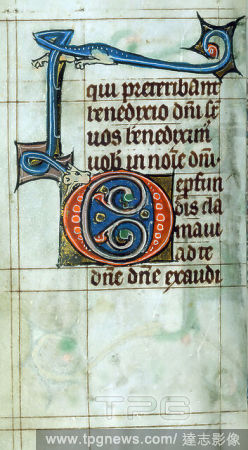 qui preteribant
benedictio dn̄i sr̄
uos benedixim̄
uob̄ in noīe dn̄i.
D epfun
dis cla
maui
ad te
dn̄e dn̄e exaudi
TPG
www.tpgnews.com/達志影像